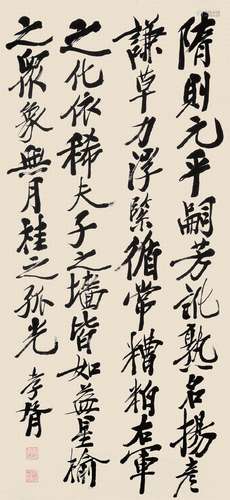 隋則元平嗣芳訛孰名揚彥
謙草力浮緊循常糟粕右軍
之化依稀夫子之墻皆如益星榆
之眾象無月桂之孤光 孝胥